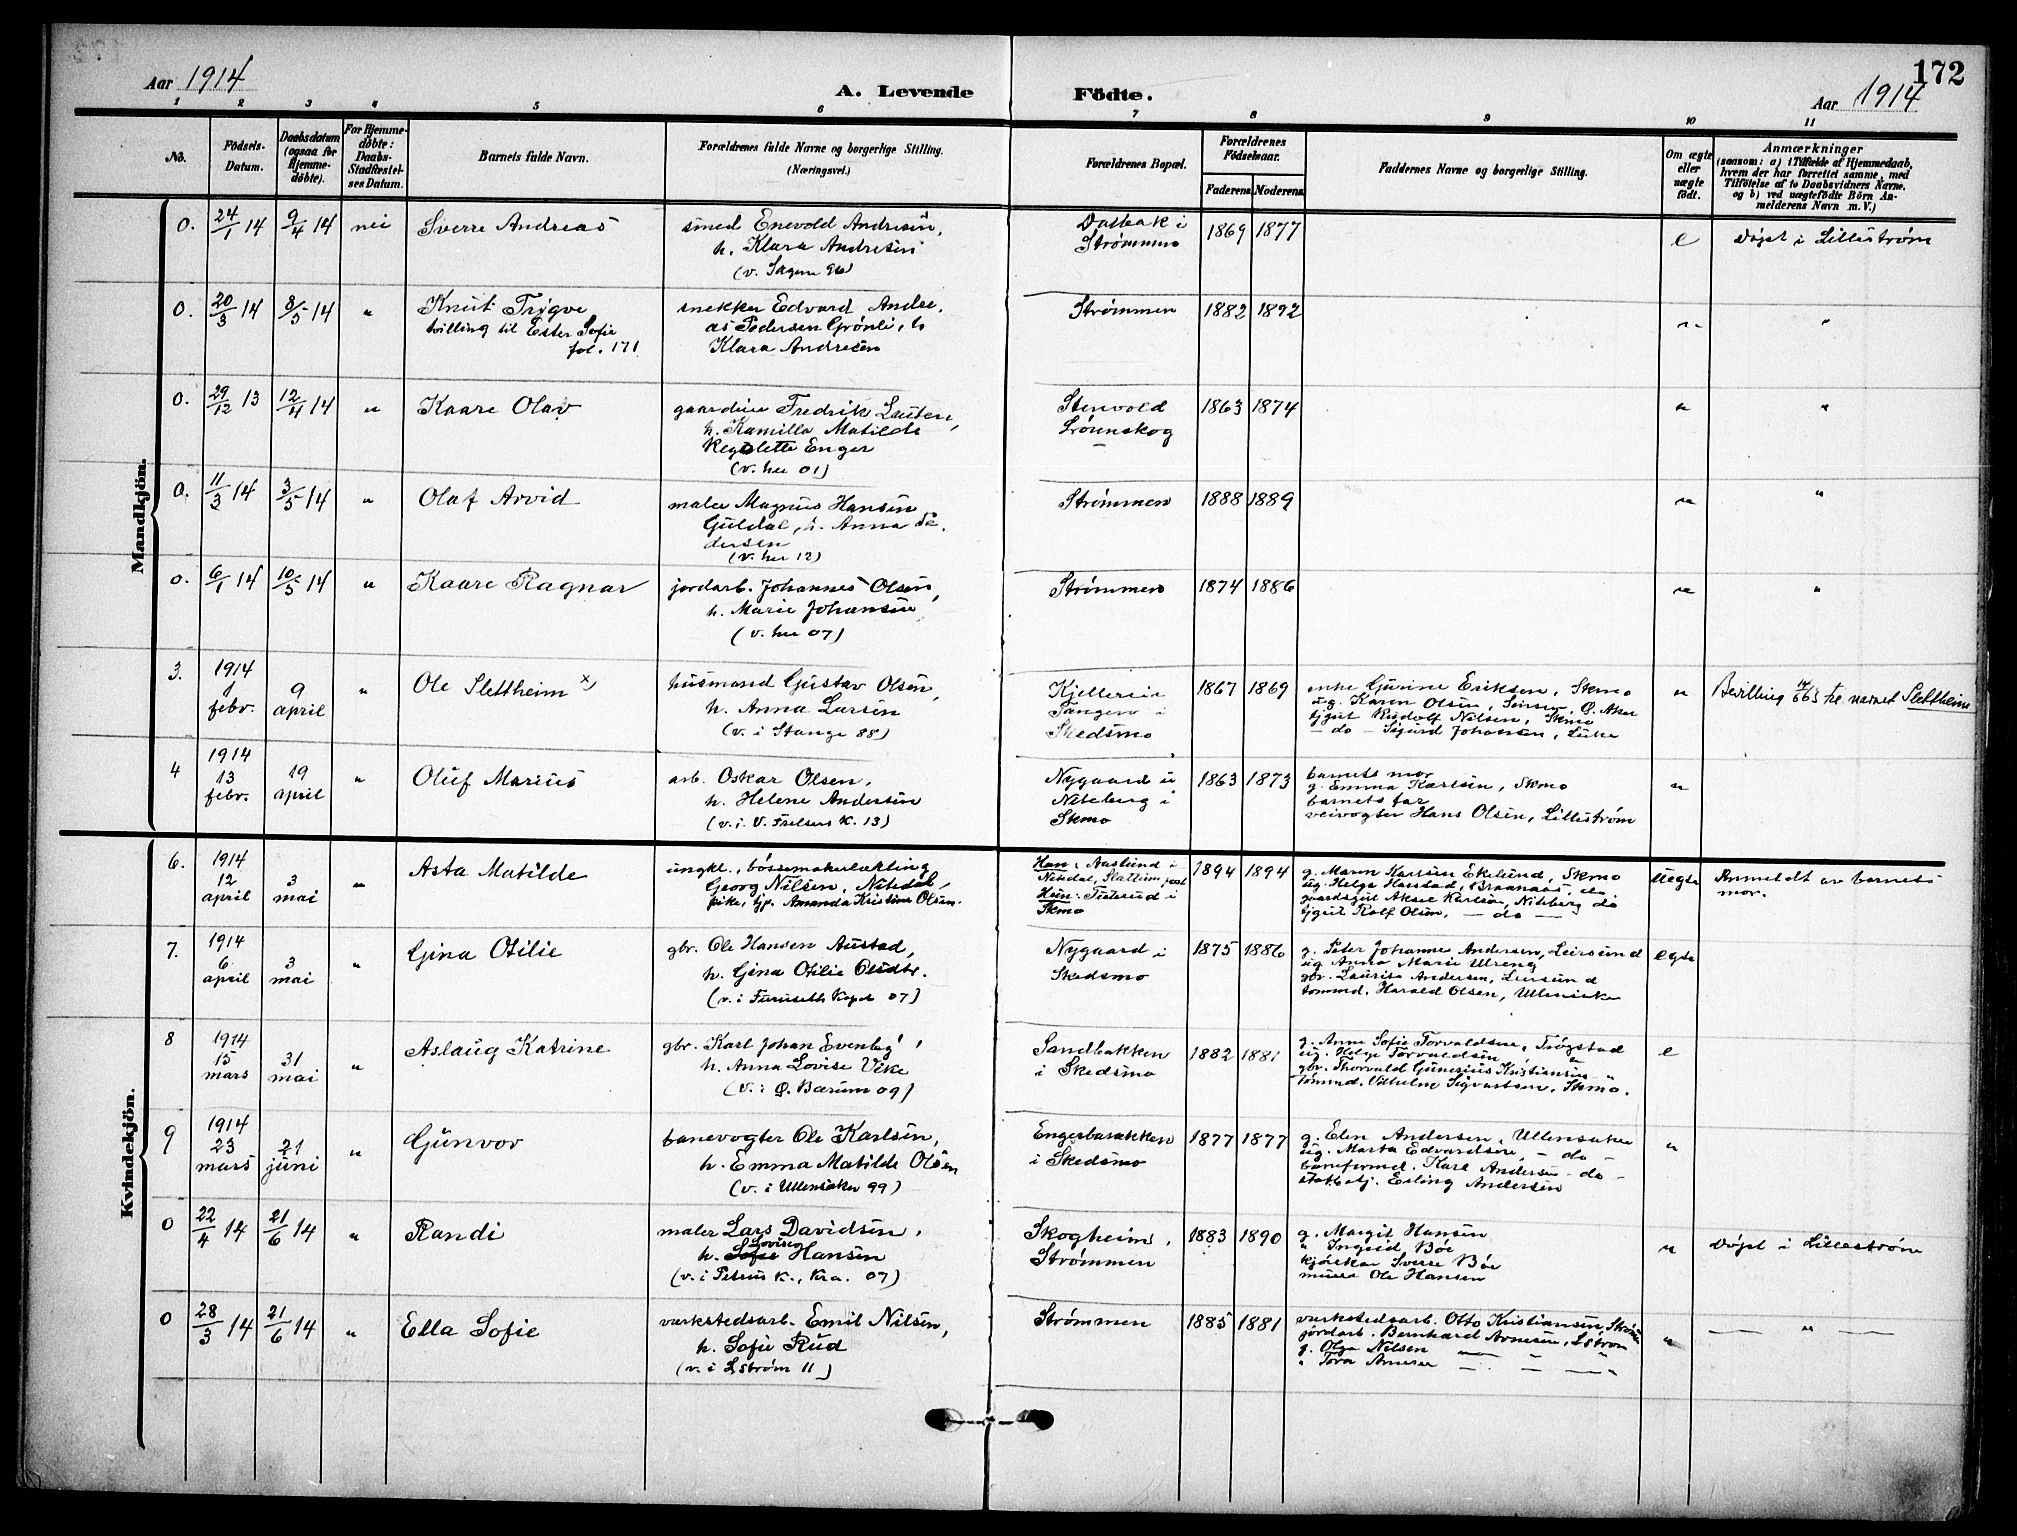 172
Aar 1914 A. Levende Födte. Aar 1914
1 2 3 4 5 6 7 8 9 10 11
No.
Födsels-Datum.
Daabsdatum (ogsaa for Hjemme-döbte).
For Hjemme-döbte: Daabs-Stadfæstel-ses Datum.
Barnets fulde Navn.
Forældrenes fulde Navne og borgerlige Stilling.
(Næringsvei.)
Forældrenes Bopæl.
Forældrenes Födselsaar.
Faderens Moderens
Faddernes Navne og borgerlige Stilling.
Om ægte eller uægte födt.
Anmærkninger
(saasom: a) i Tilfælde af Hjemmedaab,
hvem der har forrettet samme, med
Tilföielse af to Daabsvidners Navne,
og b) ved uægtefödte Börn An-
melderens Navn m. V.)
Mandkjön.
0. 24/1 14 9/4 14 nei Sverre Andreas smed Enevold Andresen, Dalbak i 1869 1877 e Døpt i Lillestrøm
h. Klara Andresen Strømmen
(v. Sagene 96)
0. 20/3 14 3/5 14 " Knut Trygve snekker Edvard Andre- Strømmen 1882 1892 " "
tvilling til Ester Sofie as Pedersen Grönli, h
fol. 171 Klara Andresen
0. 29/12 13 12/4 14 " Kaare Olav gaardeier Fredrik Lauten, Stenvold 1863 1874 " "
h. Kamilla Matilde Lørenskog
Regolette Enger
(v. her 01)
0. 11/3 14 3/5 14 " Olaf Arvid maler Magnus Hansen Strømmen 1888 1889 " "
Guldal, h. Anna Pe-
dersen
(v. her 12)
0. 6/1 14 10/5 14 " Kaare Ragnar jordarb. Johannes Olsen, Strømmen 1874 1886 " "
h. Marie Johansen
(v. her 07)
3. 1914 1 febr. 9 april " Ole Slettheim x) husmand Gustav Olsen, Kjellereie 1867 1869 enke Gurine Eriksen, Skmo " Bevilling for navnet Slettheim
h. Anna Larsen Tangen i ug. Karen Olsen, Ø. Aker
(v. i Stange 88) Skedsmo tjgut Rudolf Nilsen, Skmo
— do — Sigurd Johansen,
4 1914 13 febr. 19 april " Oluf Marius arb. Oskar Olsen, Nygaard u 1863 1873 barnets mor "
h. Helene Andersen Niteberg i g. Emma Karlsen, Skmo
(v. i V. Frelsers K. 13) Skmo barnets far
veivogter Hans Olsen, Lillestrøm
Kvindekjön.
6. 1914 12 april 3 mai " Asta Matilde ungk., bössemakerlærling Han: Aaslund i 1894 1894 g. Maren Karlsen Ekelund, Skmo uegte Anmeldt av barnets
Georg Nilsen, Nitedal, Nitedal, Slattum post ug. Helga Harstad, Braanaas, do mor.
pike, tjp. Amanda Kristine Olsen. Hun: Tisterud i gaardsgut Aksel Karlsen, Nitberg do
Skmo tjgut Rolf Olsen, — do —
7. 1914 6 april 3 mai " Gina Otilie gbr. Ole Hansen Austad, Nygaard i 1875 1886 g. Peter Johannes Andersen, Leirsund egte
h. Gina Otilie Olsdtr. Skedsmo ug Anna Marie Ulreng
(v. i Furuseth Kapel 07) gbr. Laurits Andersen, Leirsund
tømmd. Harald Olsen, Ullensaker
8 1914 15 mars 31 mai " Aslaug Katrine gbr. Karl Johan Evenby, Sandbakken 1882 1881 g. Anne Sofie Torvaldsen, Trøgstad e
h. Anna Lovise Vike i Skedsmo ug. Helga Torvaldsen "
(v. i Ø. Bærum 09) gbr. Thorvald Gunerius Kristiansen "
Tømmd. Vilhelm Sigvartsen, Skmo.
9 1914 23 mars 21 juni " Gunvor banevogter Ole Karlsen, Engerbarakken 1877 1877 g. Elen Andersen, Ullensaker "
h. Emma Matilde Olsen i Skedsmo ug. Marta Edvardsen, — do —
(v. i Ullensaker 99) baneformd. Karl Andersen — do —
Erling Andersen
0 22/4 14 21/6 14 " Randi maler Lars Davidsen, Skogheim, 1883 1890 g. Margit Hansen " Døpt i Lillestrøm
Lovise
h. Sofie Hansen Strømmen " Ingrid Bøe
(v. i Petrus K., Kra. 07) kjørekar Sverre Bøe
murer Ole Hansen
0 28/3 14 21/6 14 " Ella Sofie verkstedsarb. Emil Nilsen, Strømmen 1885 1881 verkstedsarb. Otto Kristiansen, " — " —
h. Sofie Rud jordarb. Bernhard Arnesen, Lstrøm
(v. i Lstrøm 11) g. Olga Nilsen — " —
" Tora Arnesen — " —